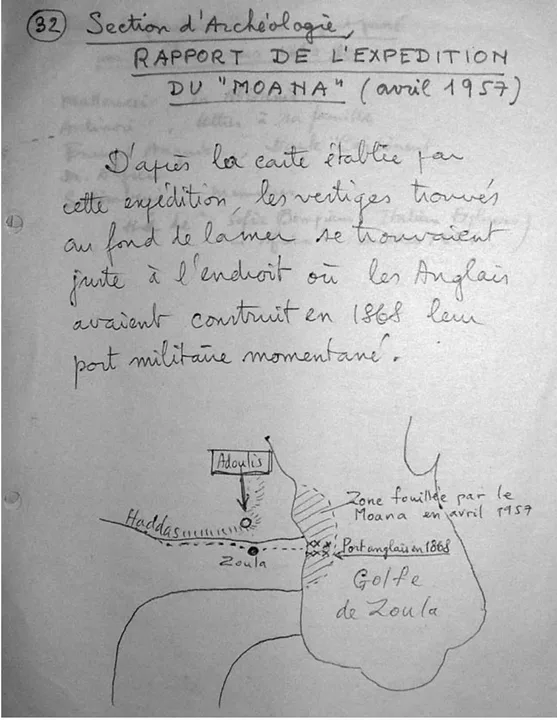 32 Section d'Archéologie,
RAPPORT DE L'EXPEDITION
DU "MOANA" (avril 1957)
D'après la carte établie par
cette expédition, les vestiges trouvés
au fond de la mer se trouvaient
juste à l'endroit où les Anglais
avaient construit en 1868 leur
port militaire momentané.
Adoulis
Zone fouillée par le
Moana en avril 1957
Haddas
Port anglais en 1868
Zoula
Golfe
de Zoula